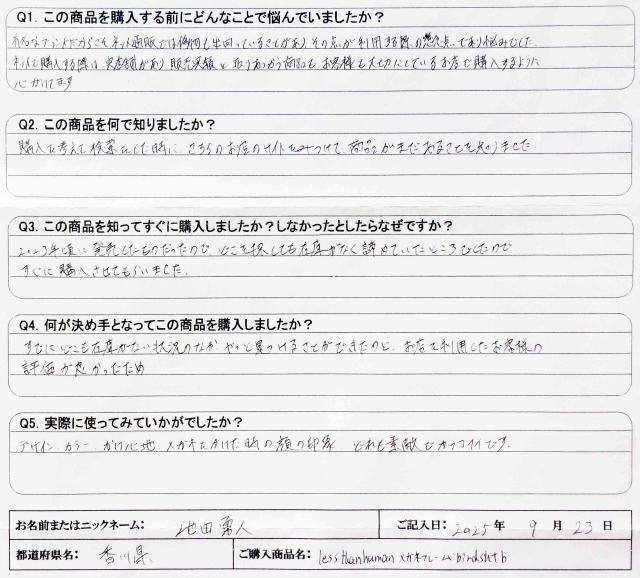 Q1. この商品を購入する前にどんなことで悩んでいましたか？
有名なブランドだからこそ、ネット通販では偽物も出回っていることがあり、その点が利用する際の懸念点であり悩みでした。
ネットで購入する際は、実店舗があり販売実績と取りあつかう商品も、お客様も大切にしているお店で購入するように
心がけてます
Q2. この商品を何で知りましたか？
購入を考えて検索をした時に、こちらのお店のサイトをみつけて、商品がまだあることを知りました。
Q3. この商品を知ってすぐに購入しましたか？しなかったとしたらなぜですか？
2023年頃に発売したものだったので、どこを探しても在庫がなく諦めていたところでしたので
すぐに購入させてもらいました。
Q4. 何が決め手となってこの商品を購入しましたか？
すでにどこも在庫がない状況のなか、やっと見つけることができたのと、お店を利用したお客様の
評価が良かったため
Q5. 実際に使ってみていかがでしたか？
デザイン、カラー、かけ心地、メガネをかけた時の顔の印象 どれも素敵でカッコイイです。
お名前またはニックネーム： 池田 勇人 ご記入日： 2025 年 9 月 23 日
都道府県名： 香川県 ご購入商品名： less than human メガネフレーム birdshtb